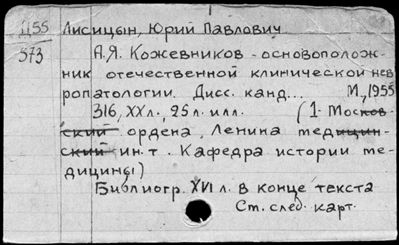 Д55 Лисицын, Юрий Павлович.
573 А.Я. Кожевников - основополож-
ник отечественной клинической нев
ропатологии. Дисс. канд... М., 1955
316, XXл., 25л. илл. (1- Москов-
ский ордена, Ленина медицин-
ский ин.т. Кафедра истории ме-
дицины)
Библиогр. XVI л. в конце текста
См. след. карт.